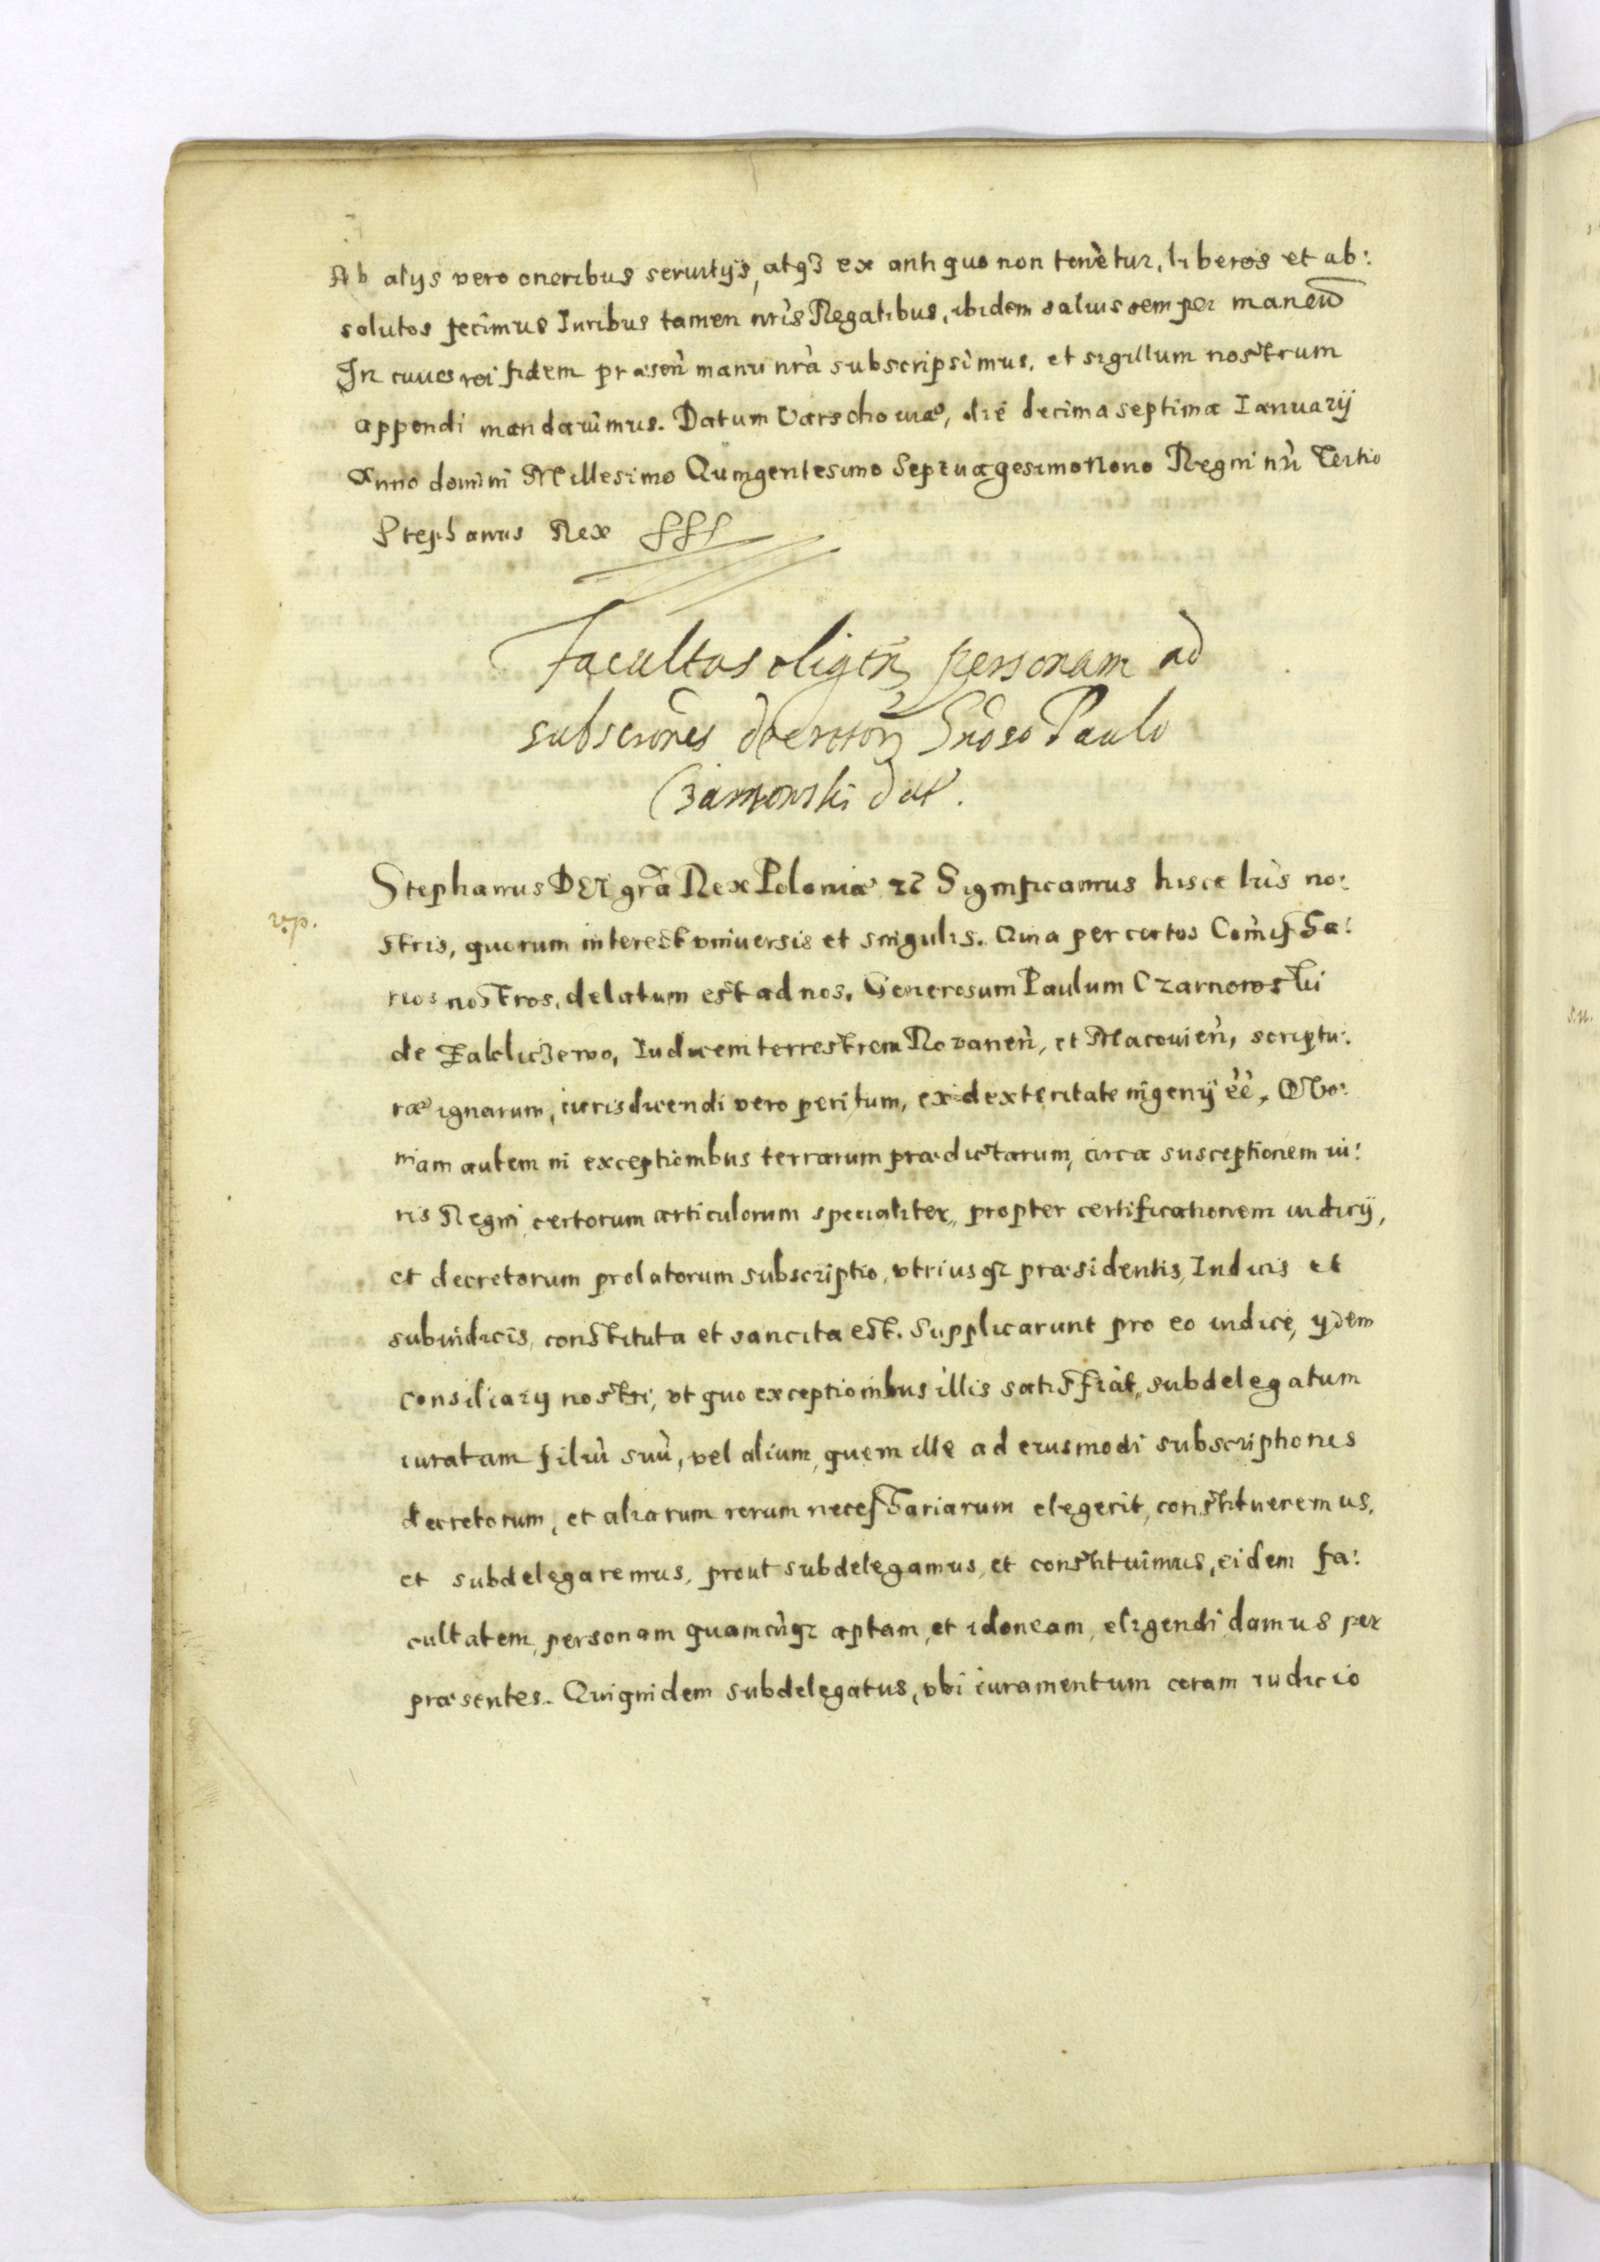 Ab alijs vero oneribus seruitijs, atq3 ex antiquo non tenètur, liberos et ab:
solutos fecimus Iuribus tamen nr̀is Regalibus, ibidem saluis semper maneñ
In cuius rei fidem præsen̄ manu nr̀a subscripsimus, et sigillum nostrum
appendi mandauimus. Datum Varschouiæ, die decima septima Ianuarij
Anno domini Millesimo Quingentesimo Septuagesimo Nono Regni nr̀i Tertio
Stephanus Rex
Facultas eligen personam ad
subscriones decretor Gnoso Paulo
Czarnowski dat.
Stephanus DEI gr̃a Rex Poloniæ Significamus hisce lr̀is no:
vp.
stris, quorum interest vniuersis et singulis. Quia per certos Com̀issa:
rios nostros, delatum est ad nos, Generosum Paulum Czarnowski
de Iudicem terrestrem Rozanen̄, et Macouien̄, scriptu:
ræ ignarum, iurisdicendi vero peritum, ex dexteritate ingenij èè, QVo:
niam autem in exceptionibus terrarum prædictarum, circa susceptionem iu:
ris Regni, certorum articulorum specialiter, propter certificationem iudicij,
et decretorum prolatorum subscriptio, vtriusq3 præsidentis, Iudicis et
subiudicis, constituta et sancita est. Supplicarunt pro eo iudice, ijdem
consiliarij nostri, vt quo exceptionibus illis satisfiat, subdelegatum
iuratam filiù suù, vel alium, quem ille ad eiusmodi subscriptiones
decretorum, et aliarum rerum necessariarum elegerit, constitueremus,
et subdelegaremus, prout subdelegamus, et constituimus, eidem fa:
cultatem, personam quamcùq3 aptam, et idoneam, eligendi damus per
præsentes. Quiquidem subdelegatus, vbi iuramentum coram iudicio